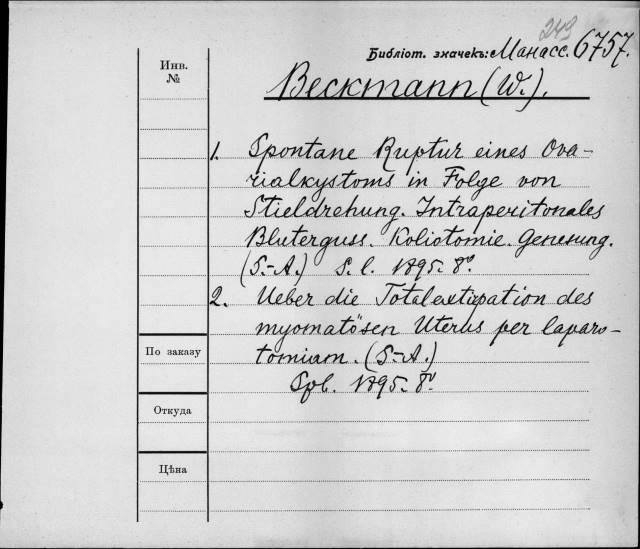 243
Библіот. значекъ: Манасс. 6757.
Инв.
№
Beckmann (W.).
1. Spontane Ruptur eines Ova-
rialkystoms in Folge von
Stieldrehung. Intraperitonales
Bluterguss. Koliotomie. Genesung.
(S.-A.) S. l. 1895. 8º.
2. Ueber die Totalextirpation des
myomatösen Uterus per laparo-
tomiam. (S.-A.)
Spb. 1895. 8º.
По заказу
Откуда
Цѣна